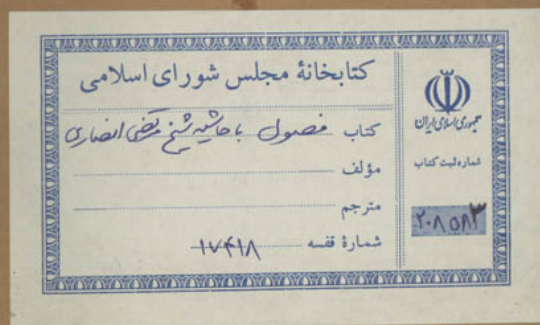 کتابخانهٔ مجلس شورای اسلامی
کتاب فصول با حاشیه شیخ مرتضی انصاری
مؤلف
مترجم
شمارهٔ قفسه ۱۷۴۱۸
جمهوری اسلامی ایران
شماره ثبت کتاب
۲۰۸۵۸۳